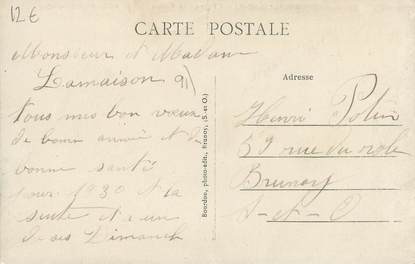 12 €
CARTE POSTALE
Monsieur et Madame
Lamaison
Tous mes bon voeux
de bonne année et de
bonne santé
pour 1930 et la
suite et a un
de ses Dimanch
Bourdon, photo-édit., Brunoy (S.-et-O.)
Adresse
Henri Potin
59 rue du
Brunoy
S-et-O